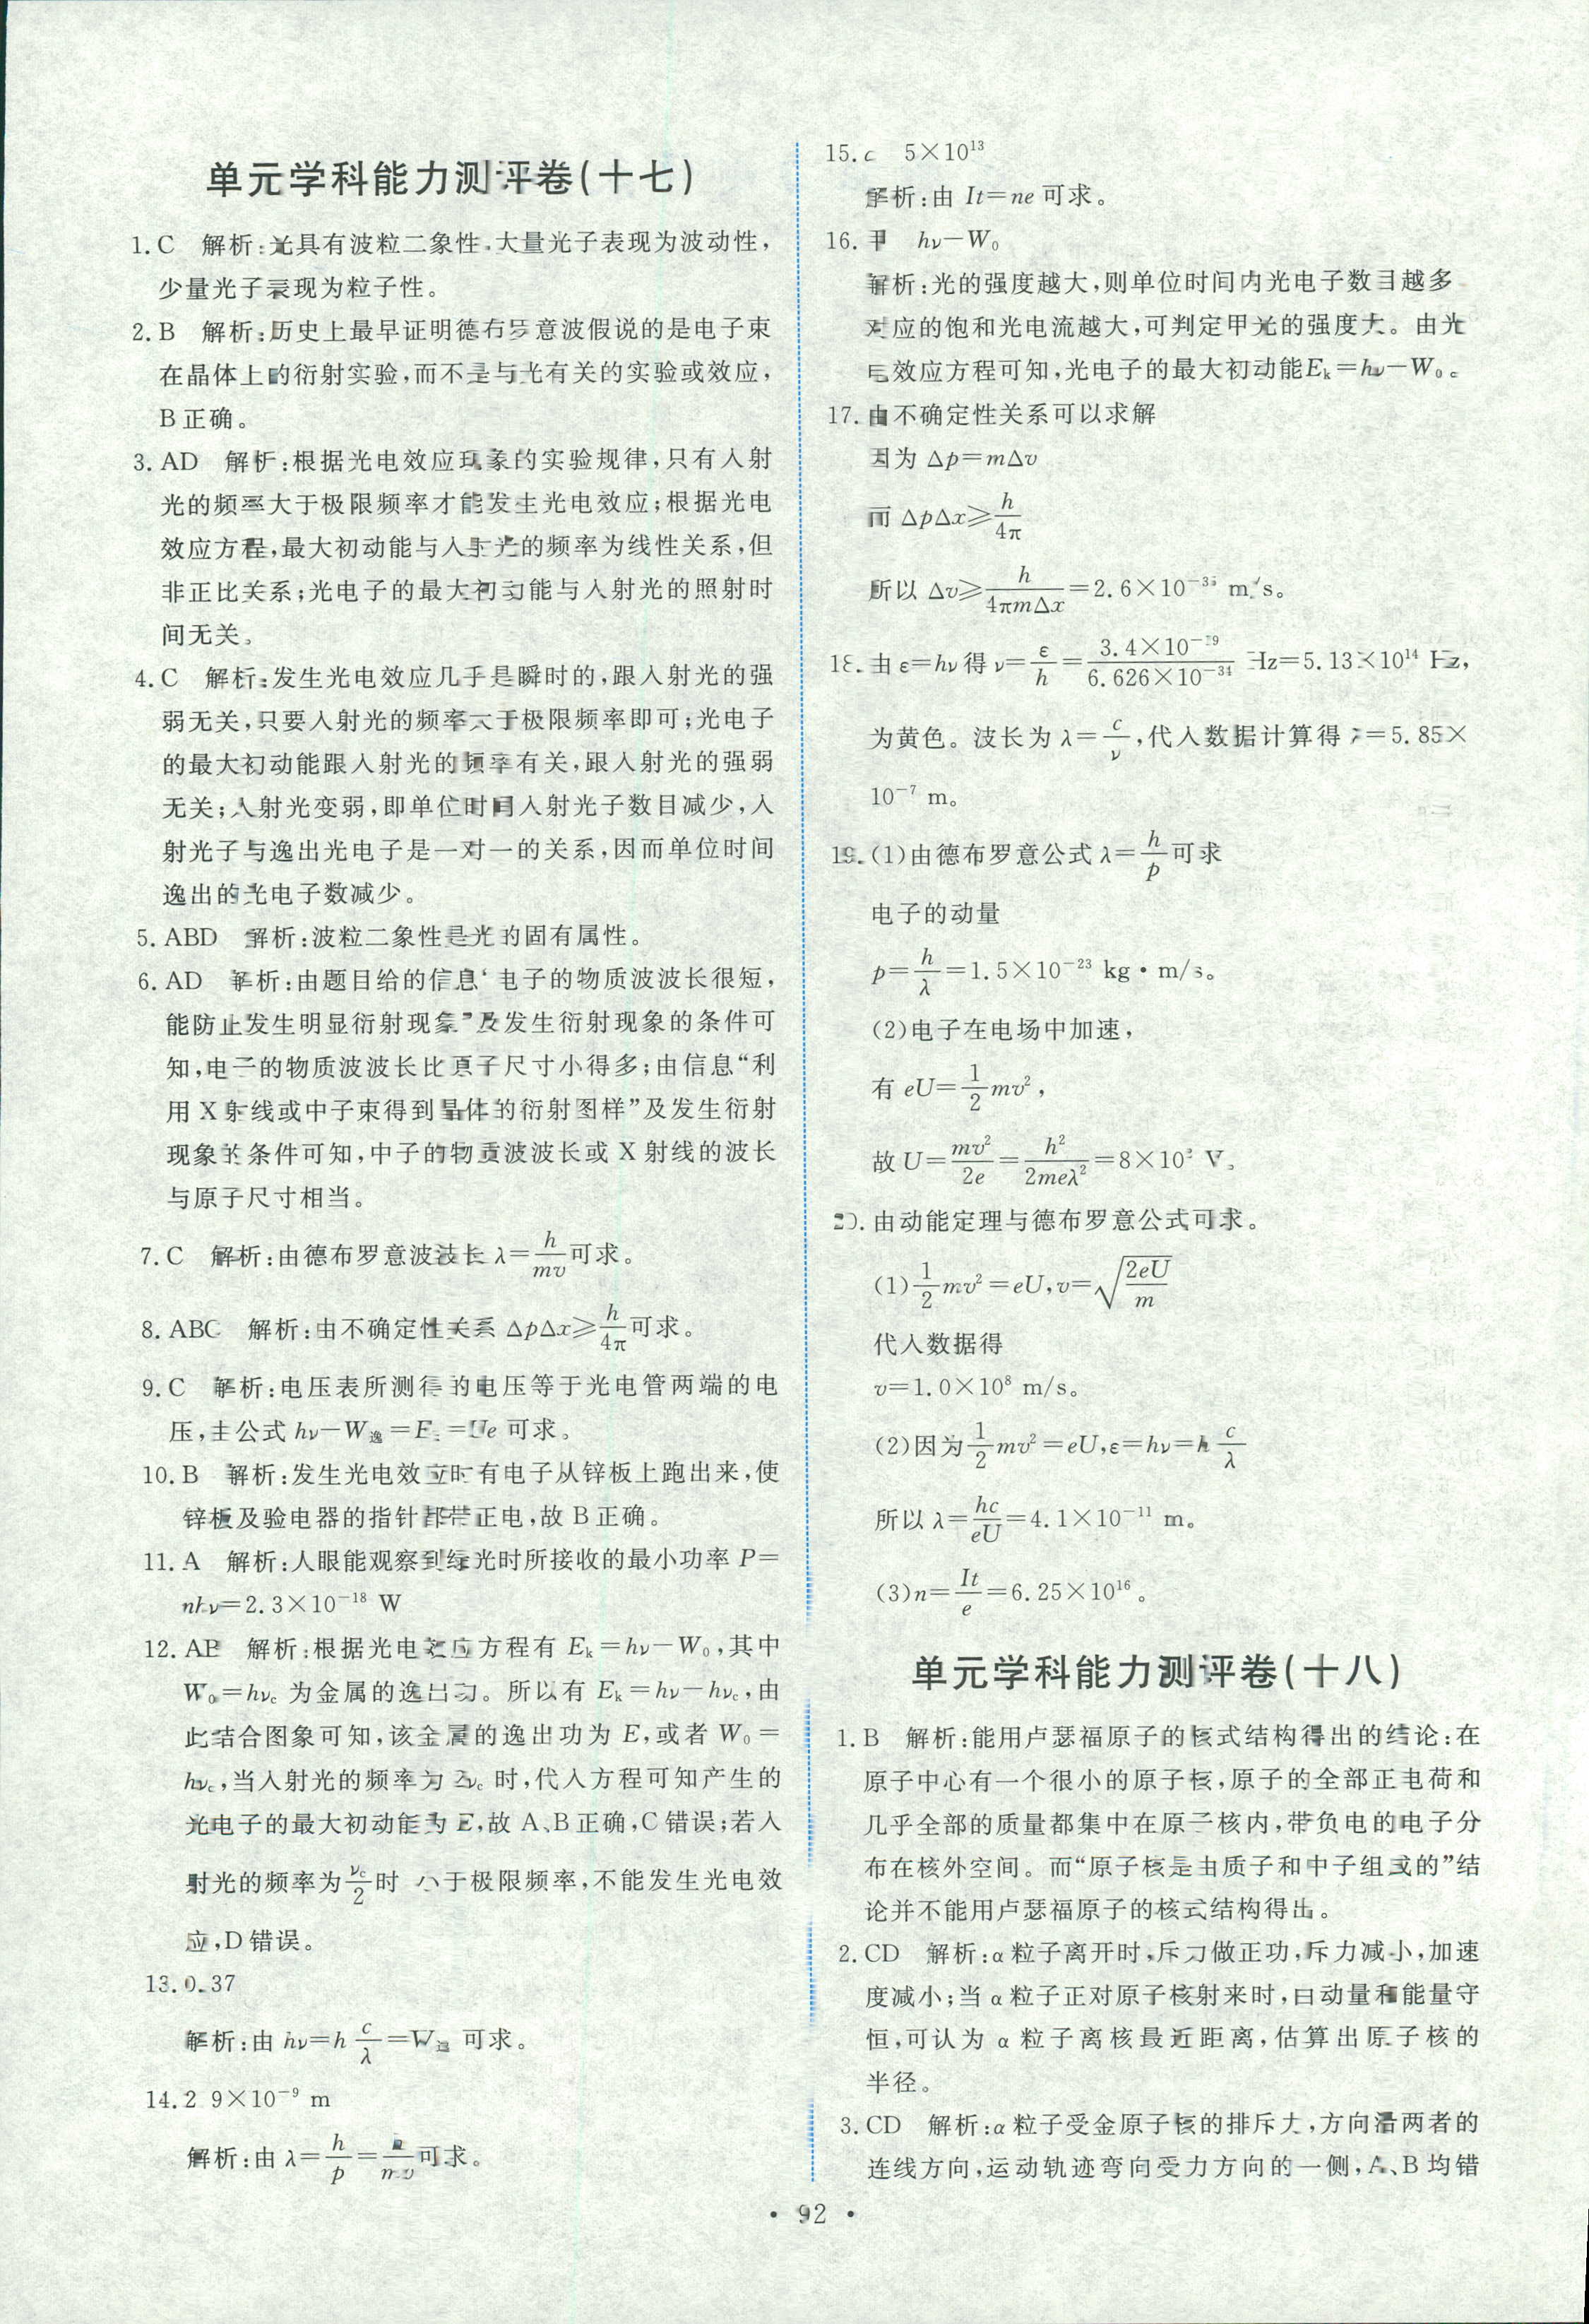 单元学科能力测评卷(十七)
1.C 解析:光具有波粒二象性,大量光子表现为波动性,
少量光子表现为粒子性。
2.B 解析:历史上最早证明德布罗意波假说的是电子束
在晶体上的衍射实验,而不是与光有关的实验或效应,
B正确。
3.AD 解析:根据光电效应现象的实验规律,只有入射
光的频率大于极限频率才能发生光电效应;根据光电
效应方程,最大初动能与入射光的频率为线性关系,但
非正比关系;光电子的最大初动能与入射光的照射时
间无关。
4.C 解析:发生光电效应几乎是瞬时的,跟入射光的强
弱无关,只要入射光的频率大于极限频率即可;光电子
的最大初动能跟入射光的频率有关,跟入射光的强弱
无关;入射光变弱,即单位时间入射光子数目减少,入
射光子与逸出光电子是一对一的关系,因而单位时间
逸出的光电子数减少。
5.ABD 解析:波粒二象性是光的固有属性。
6.AD 解析:由题目给的信息“电子的物质波波长很短,
能防止发生明显衍射现象”及发生衍射现象的条件可
知,电子的物质波波长比原子尺寸小得多;由信息“利
用X射线或中子束得到晶体的衍射图样”及发生衍射
现象的条件可知,中子的物质波波长或X射线的波长
与原子尺寸相当。
7.C 解析:由德布罗意波波长 λ=h/mv可求。
8.ABC 解析:由不确定性关系 ΔpΔx≥h/4π可求。
9.C 解析:电压表所测得的电压等于光电管两端的电
压,由公式 hν-W逸=Eₖ=Ue 可求。
10.B 解析:发生光电效应时有电子从锌板上跑出来,使
锌板及验电器的指针都带正电,故B正确。
11.A 解析:人眼能观察到绿光时所接收的最小功率 P=
nhν=2.3×10⁻¹⁸ W
12.AB 解析:根据光电效应方程有 Eₖ=hν-W₀,其中
W₀=hν꜀ 为金属的逸出功。所以有 Eₖ=hν-hν꜀,由
此结合图象可知,该金属的逸出功为 E,或者 W₀=
hν꜀,当入射光的频率为 2ν꜀ 时,代入方程可知产生的
光电子的最大初动能为 E,故 A、B正确,C错误;若入
射光的频率为ν꜀/2时 小于极限频率,不能发生光电效
应,D错误。
13.0.37
解析:由 hν=h c/λ=W逸 可求。
14.2 9×10⁻⁹ m
解析:由 λ=h/p=h/mv可求。
15.c 5×10¹³
解析:由 It=ne 可求。
16.甲 hν-W₀
解析:光的强度越大,则单位时间内光电子数目越多
对应的饱和光电流越大,可判定甲光的强度大。由光
电效应方程可知,光电子的最大初动能Eₖ=hν-W₀。
17.由不确定性关系可以求解
因为 Δp=mΔv
而 ΔpΔx≥h/4π
所以 Δv≥h/4πmΔx=2.6×10⁻³⁵ m/s。
18.由 ε=hν 得 ν=ε/h=3.4×10⁻¹⁹/6.626×10⁻³⁴ Hz=5.13×10¹⁴ Hz,
为黄色。波长为 λ=c/ν,代入数据计算得 λ=5.85×
10⁻⁷ m。
19.(1)由德布罗意公式 λ=h/p可求
电子的动量
p=h/λ=1.5×10⁻²³ kg·m/s。
(2)电子在电场中加速,
有 eU=1/2mv²,
故 U=mv²/2e=h²/2meλ²=8×10² V。
20.由动能定理与德布罗意公式可求。
(1)1/2mv²=eU,v=√(2eU/m)
代入数据得
v=1.0×10⁸ m/s。
(2)因为1/2mv²=eU,ε=hν=h c/λ
所以 λ=hc/eU=4.1×10⁻¹¹ m。
(3)n=It/e=6.25×10¹⁶。
单元学科能力测评卷(十八)
1.B 解析:能用卢瑟福原子的核式结构得出的结论:在
原子中心有一个很小的原子核,原子的全部正电荷和
几乎全部的质量都集中在原子核内,带负电的电子分
布在核外空间。而“原子核是由质子和中子组成的”结
论并不能用卢瑟福原子的核式结构得出。
2.CD 解析:α粒子离开时,斥力做正功,斥力减小,加速
度减小;当α粒子正对原子核射来时,由动量和能量守
恒,可认为 α 粒子离核最近距离,估算出原子核的
半径。
3.CD 解析:α粒子受金原子核的排斥力,方向沿两者的
连线方向,运动轨迹弯向受力方向的一侧,A、B均错
• 92 •